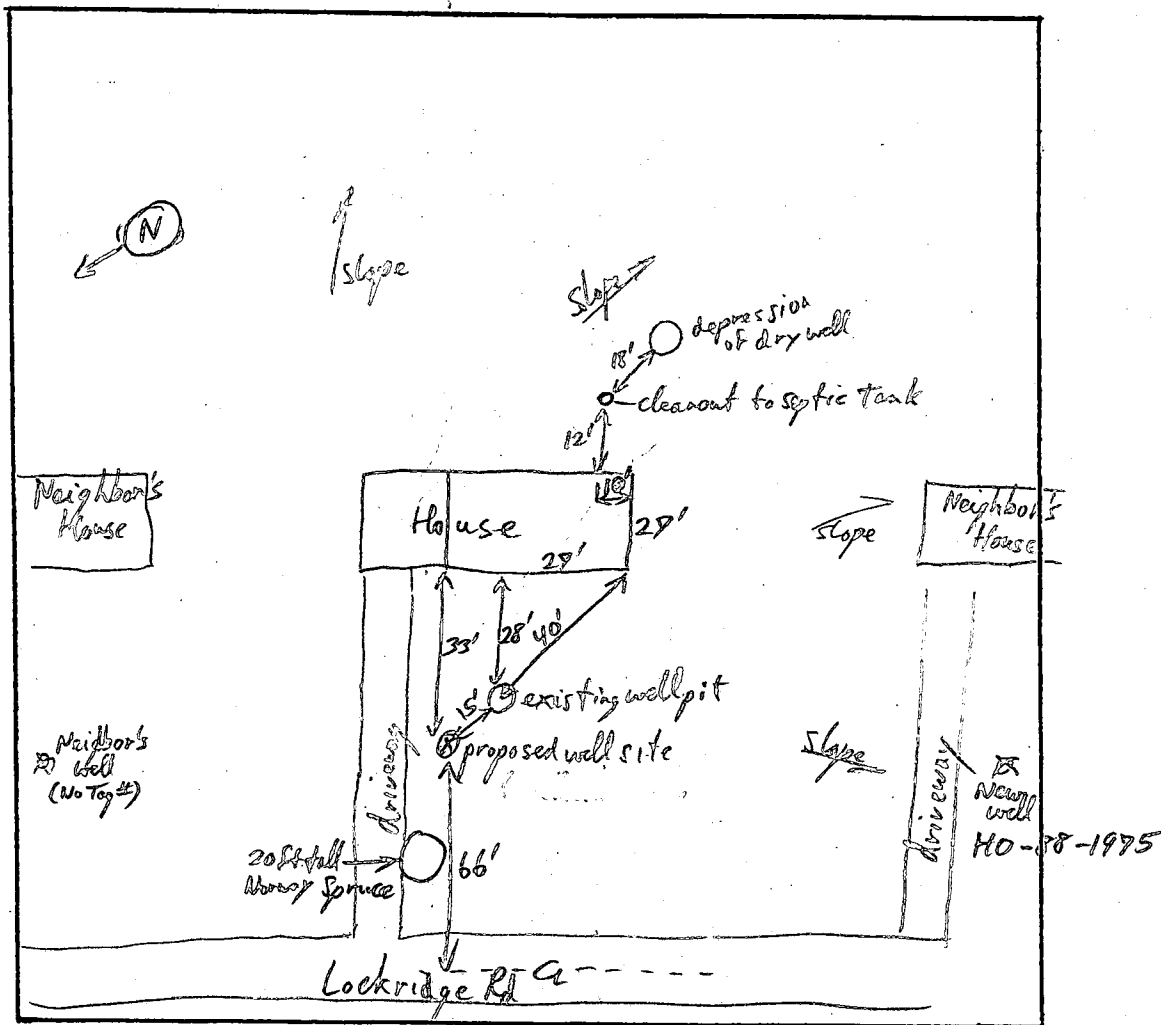 N
slope
slope
depression
of dry well
18'
cleanout to septic Tank
12'
Neighbor's
House
House
29'
29'
slope
Neighbor's
House
33'
28'
40'
15'
existing well pit
proposed well site
Neighbor's
Well
(No Tag #)
driveway
slope
driveway
well
20 ft tall
Norway Spruce
66'
Lockridge Rd